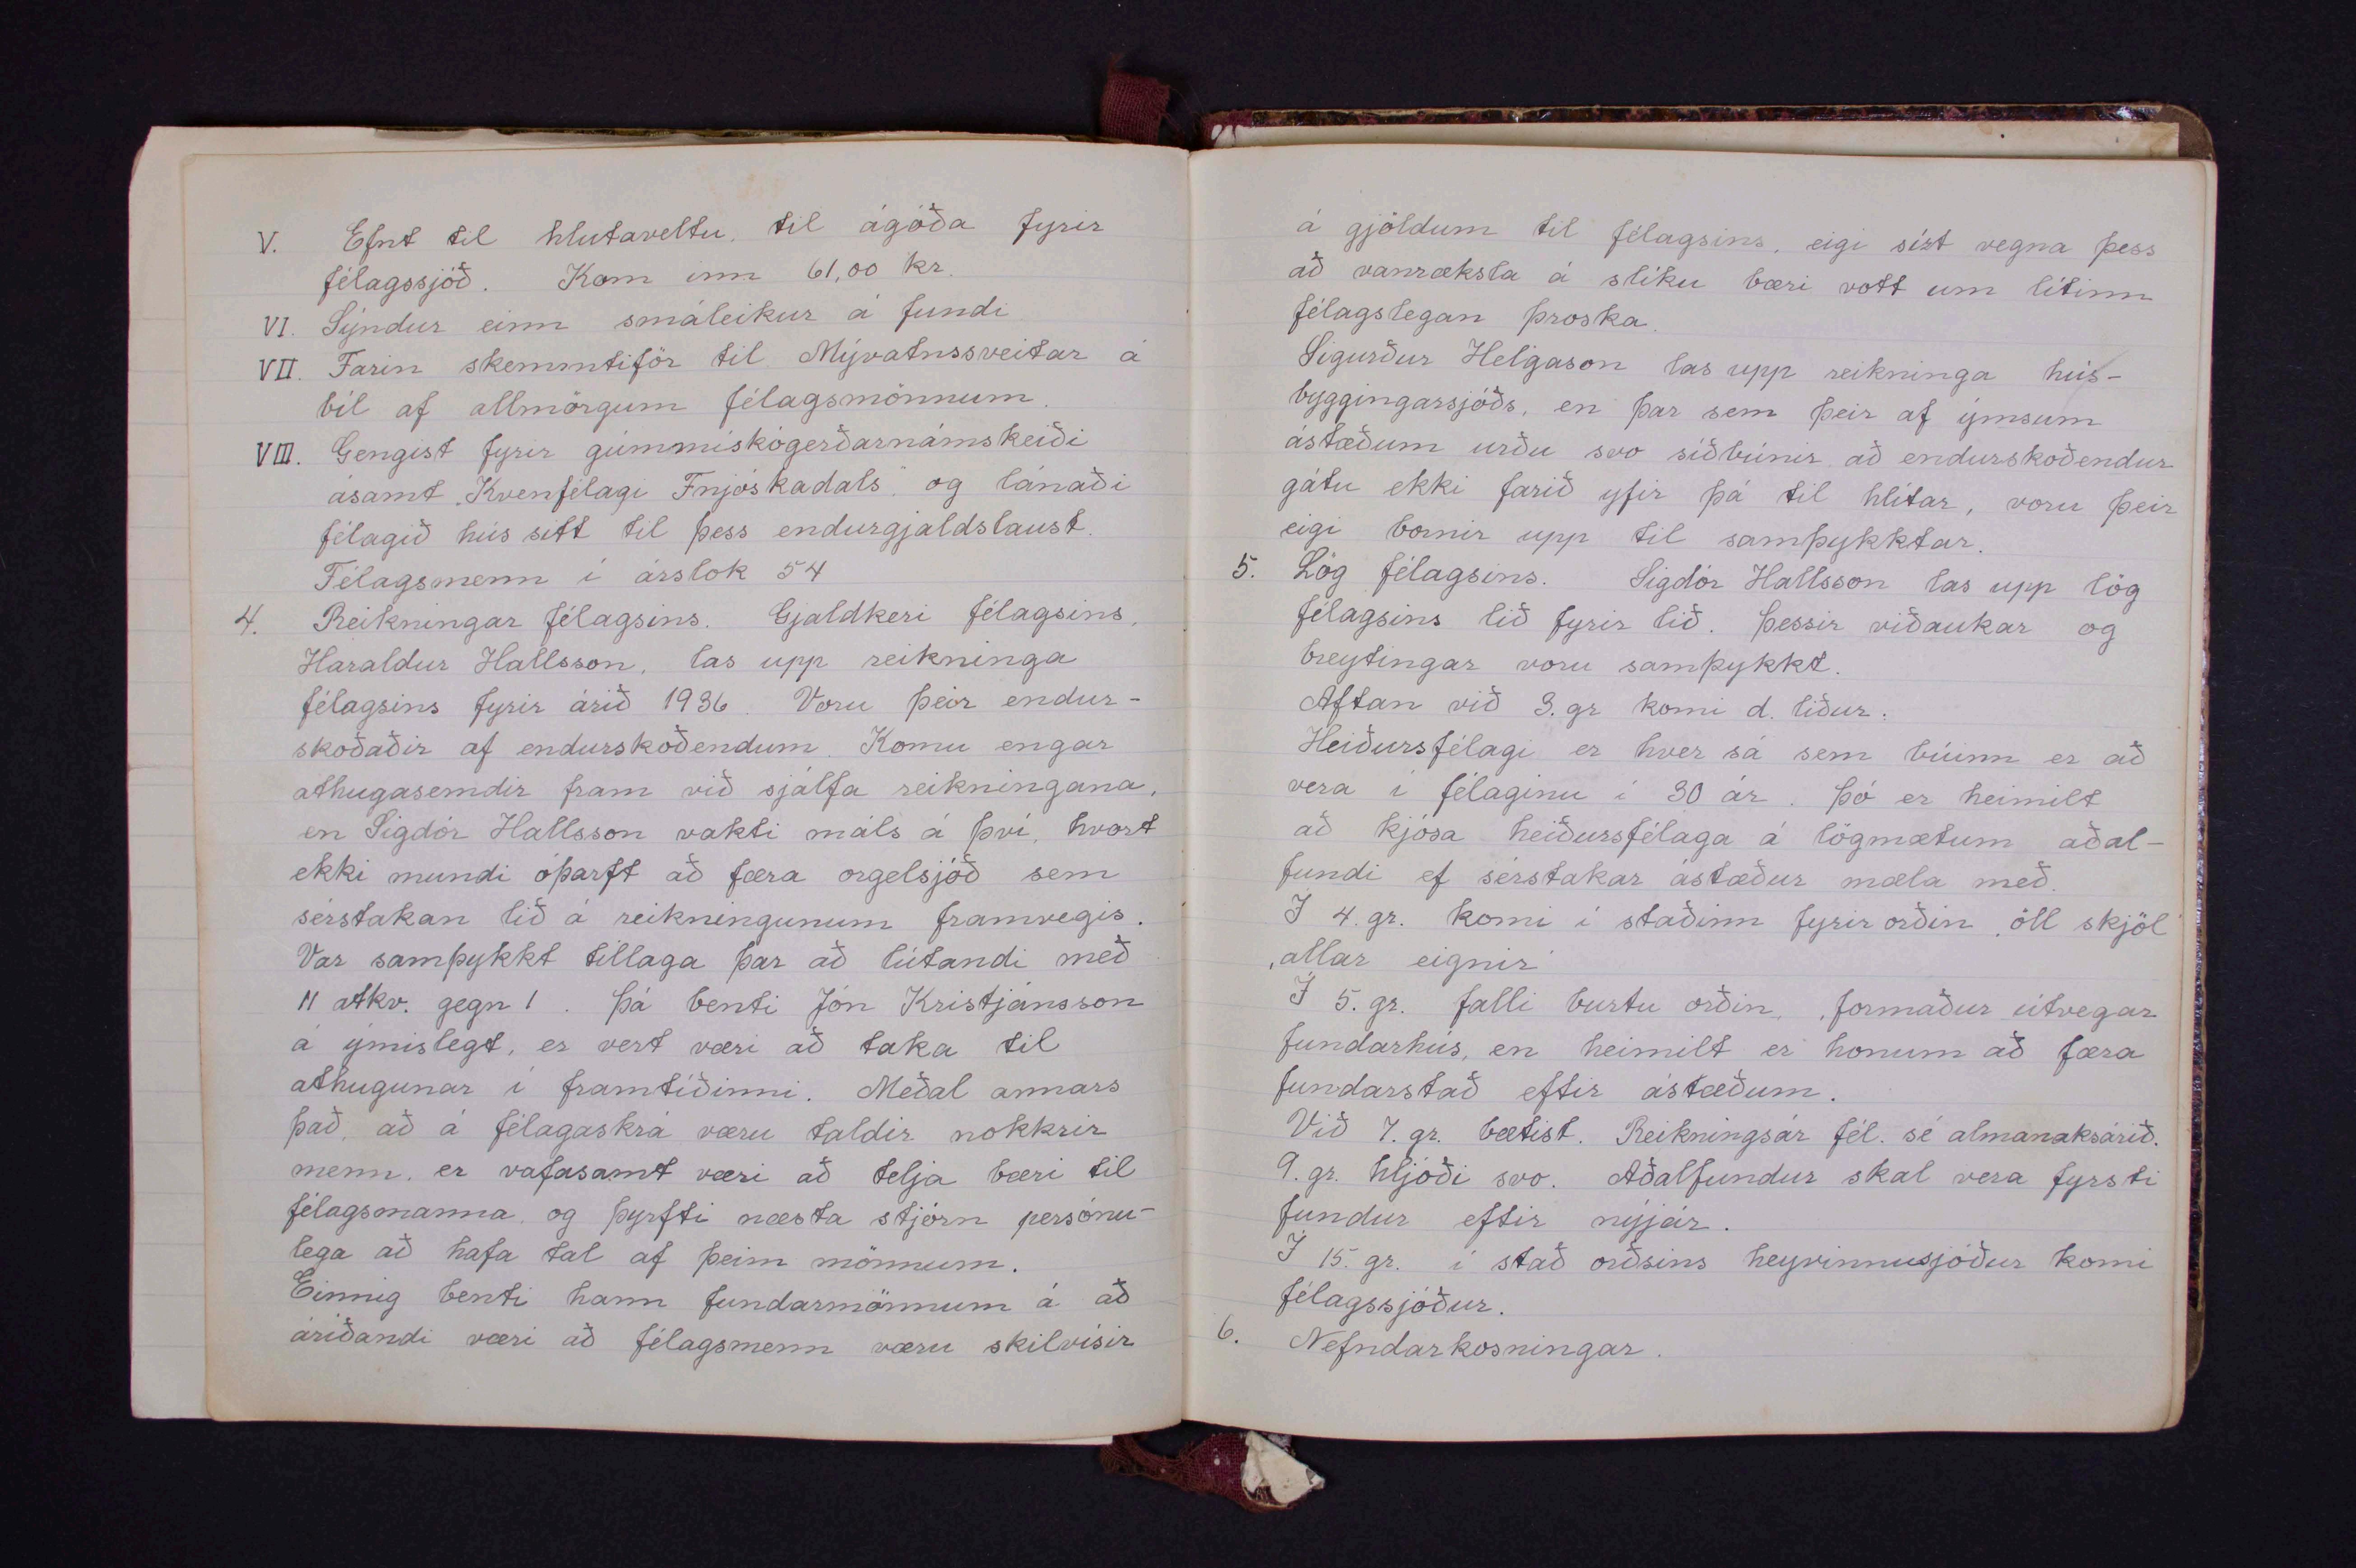 V. Efnt til hlutaveltu, til ágóða fyrir
félagssjóð. Kom inn 61,00 kr.
VI. Sýndur einn smáleikur á fundi
VII. Farin skemmtiför til Mývatnssveitar á
bíl af allmörgum félagsmönnum.
VIII. Gengist fyrir gúmmískógerðarnámskeiði
ásamt „Kvenfélagi Fnjóskadals" og lánaði
félagið hús sitt til þess endurgjaldslaust.
Félagsmenn í árslok 54
4. Reikningar félagsins. Gjaldkeri félagsins,
Haraldur Hallsson, las upp reikninga
félagsins fyrir árið 1936. Voru þeir endur-
skoðaðir af endurskoðendum. Komu engar
athugasemdir fram við sjálfa reikningana,
en Sigdór Hallsson vakti máls á því, hvort
ekki mundi óþarft að færa orgelsjóð sem
sérstakan lið á reikningunum framvegis.
Var samþykkt tillaga þar að lútandi með
11 atkv. gegn 1. Þá benti Jón Kristjánsson
á ýmislegt, er vert væri að taka til
athugunar í framtíðinni. Meðal annars
það, að á félagaskrá væru taldir nokkrir
menn, er vafasamt væri að telja bæri til
félagsmanna, og þyrfti næsta stjórn persónu-
lega að hafa tal af þeim mönnum.
Einnig benti hann fundarmönnum á að
áríðandi væri að félagsmenn væru skilvísir
á gjöldum til félagsins, eigi sízt vegna þess
að vanræksla á slíku bæri vott um lítinn
félagslegan þroska.
Sigurður Helgason las upp reikninga hús-
byggingarsjóðs, en þar sem þeir af ýmsum
ástæðum urðu svo síðbúnir að endurskoðendur
gátu ekki farið yfir þá til hlítar, voru þeir
eigi bornir upp til samþykktar.
5. Lög félagsins. Sigdór Hallsson las upp lög
félagsins lið fyrir lið. Þessir viðaukar og
breytingar voru samþykkt.
Aftan við 3. gr komi d. liður:
Heiðursfélagi er hver sá sem búinn er að
vera í félaginu í 30 ár. Þó er heimilt
að kjósa heiðursfélaga á lögmætum aðal-
fundi ef sérstakar ástæður mæla með.
Í 4. gr. komi í staðinn fyrir orðin „öll skjöl"
„allar eignir"
Í 5. gr. falli burtu orðin, „formaður útvegar
fundarhús, en heimilt er honum að færa
fundarstað eftir ástæðum.
Við 7. gr. bætist. Reikningsár fél. sé almanaksárið.
9. gr. hljóði svo. Aðalfundur skal vera fyrsti
fundur eftir nýjár.
Í 15. gr. í stað orðsins heyvinnusjóður komi
félagssjóður.
6. Nefndarkosningar.